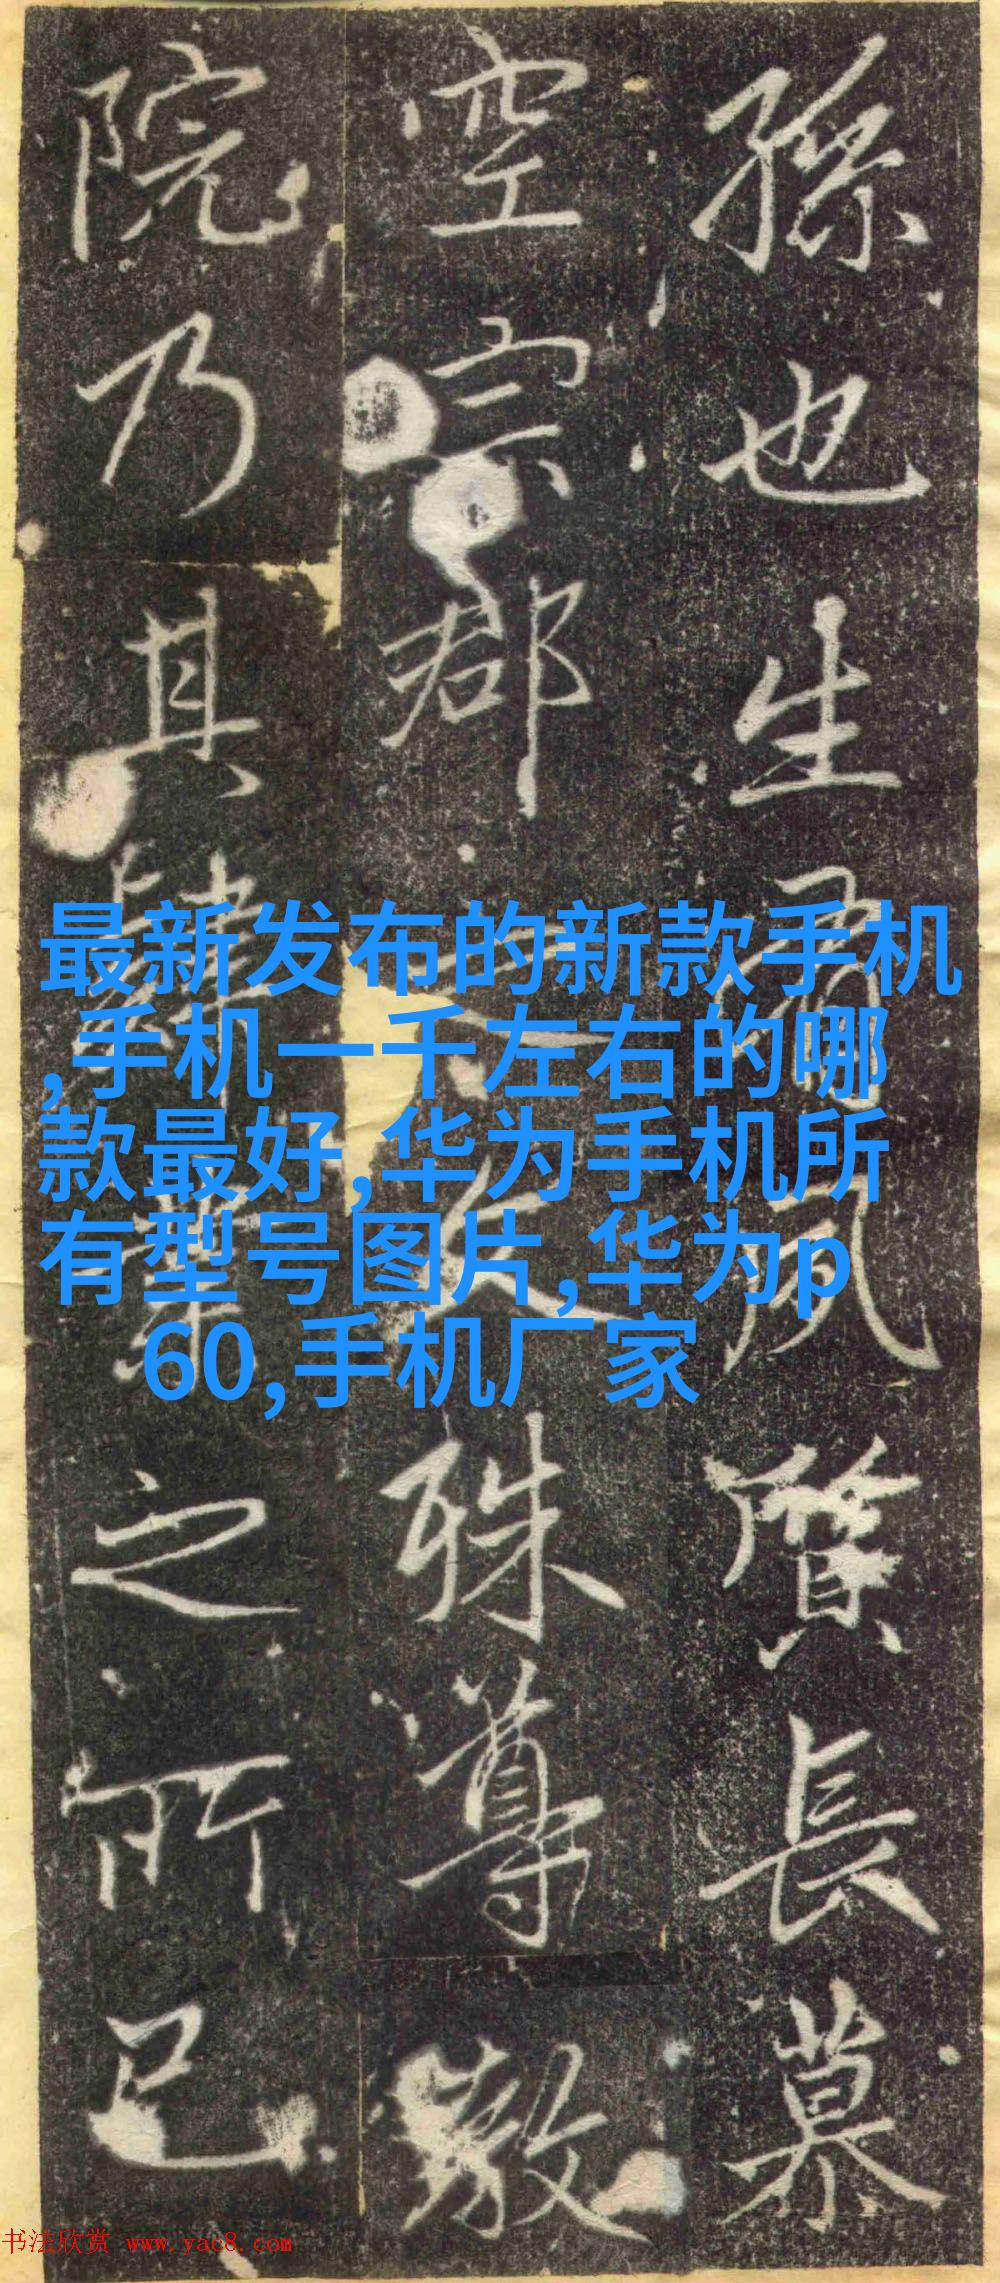 孫也生夙質長慕
空宗郡殊尊敬
院乃其肄業之所已
最新发布的新款手机
,手机一千左右的哪
款最好,华为手机所
有型号图片,华为p
60,手机厂家
书法欣赏 www.yac8.com